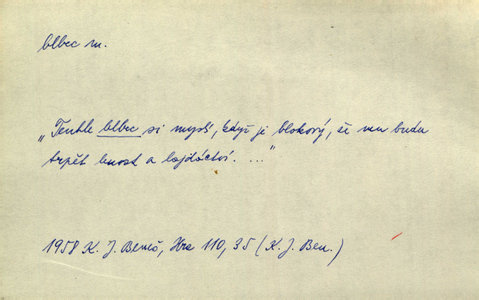 blbec m.
„Tenhle blbec si myslí, když je blokový, že mu budu
trpět hnost a lajdáctví. ..."
1958 K. J. Beneš, Hra 110, 35 (K. J. Ben.)